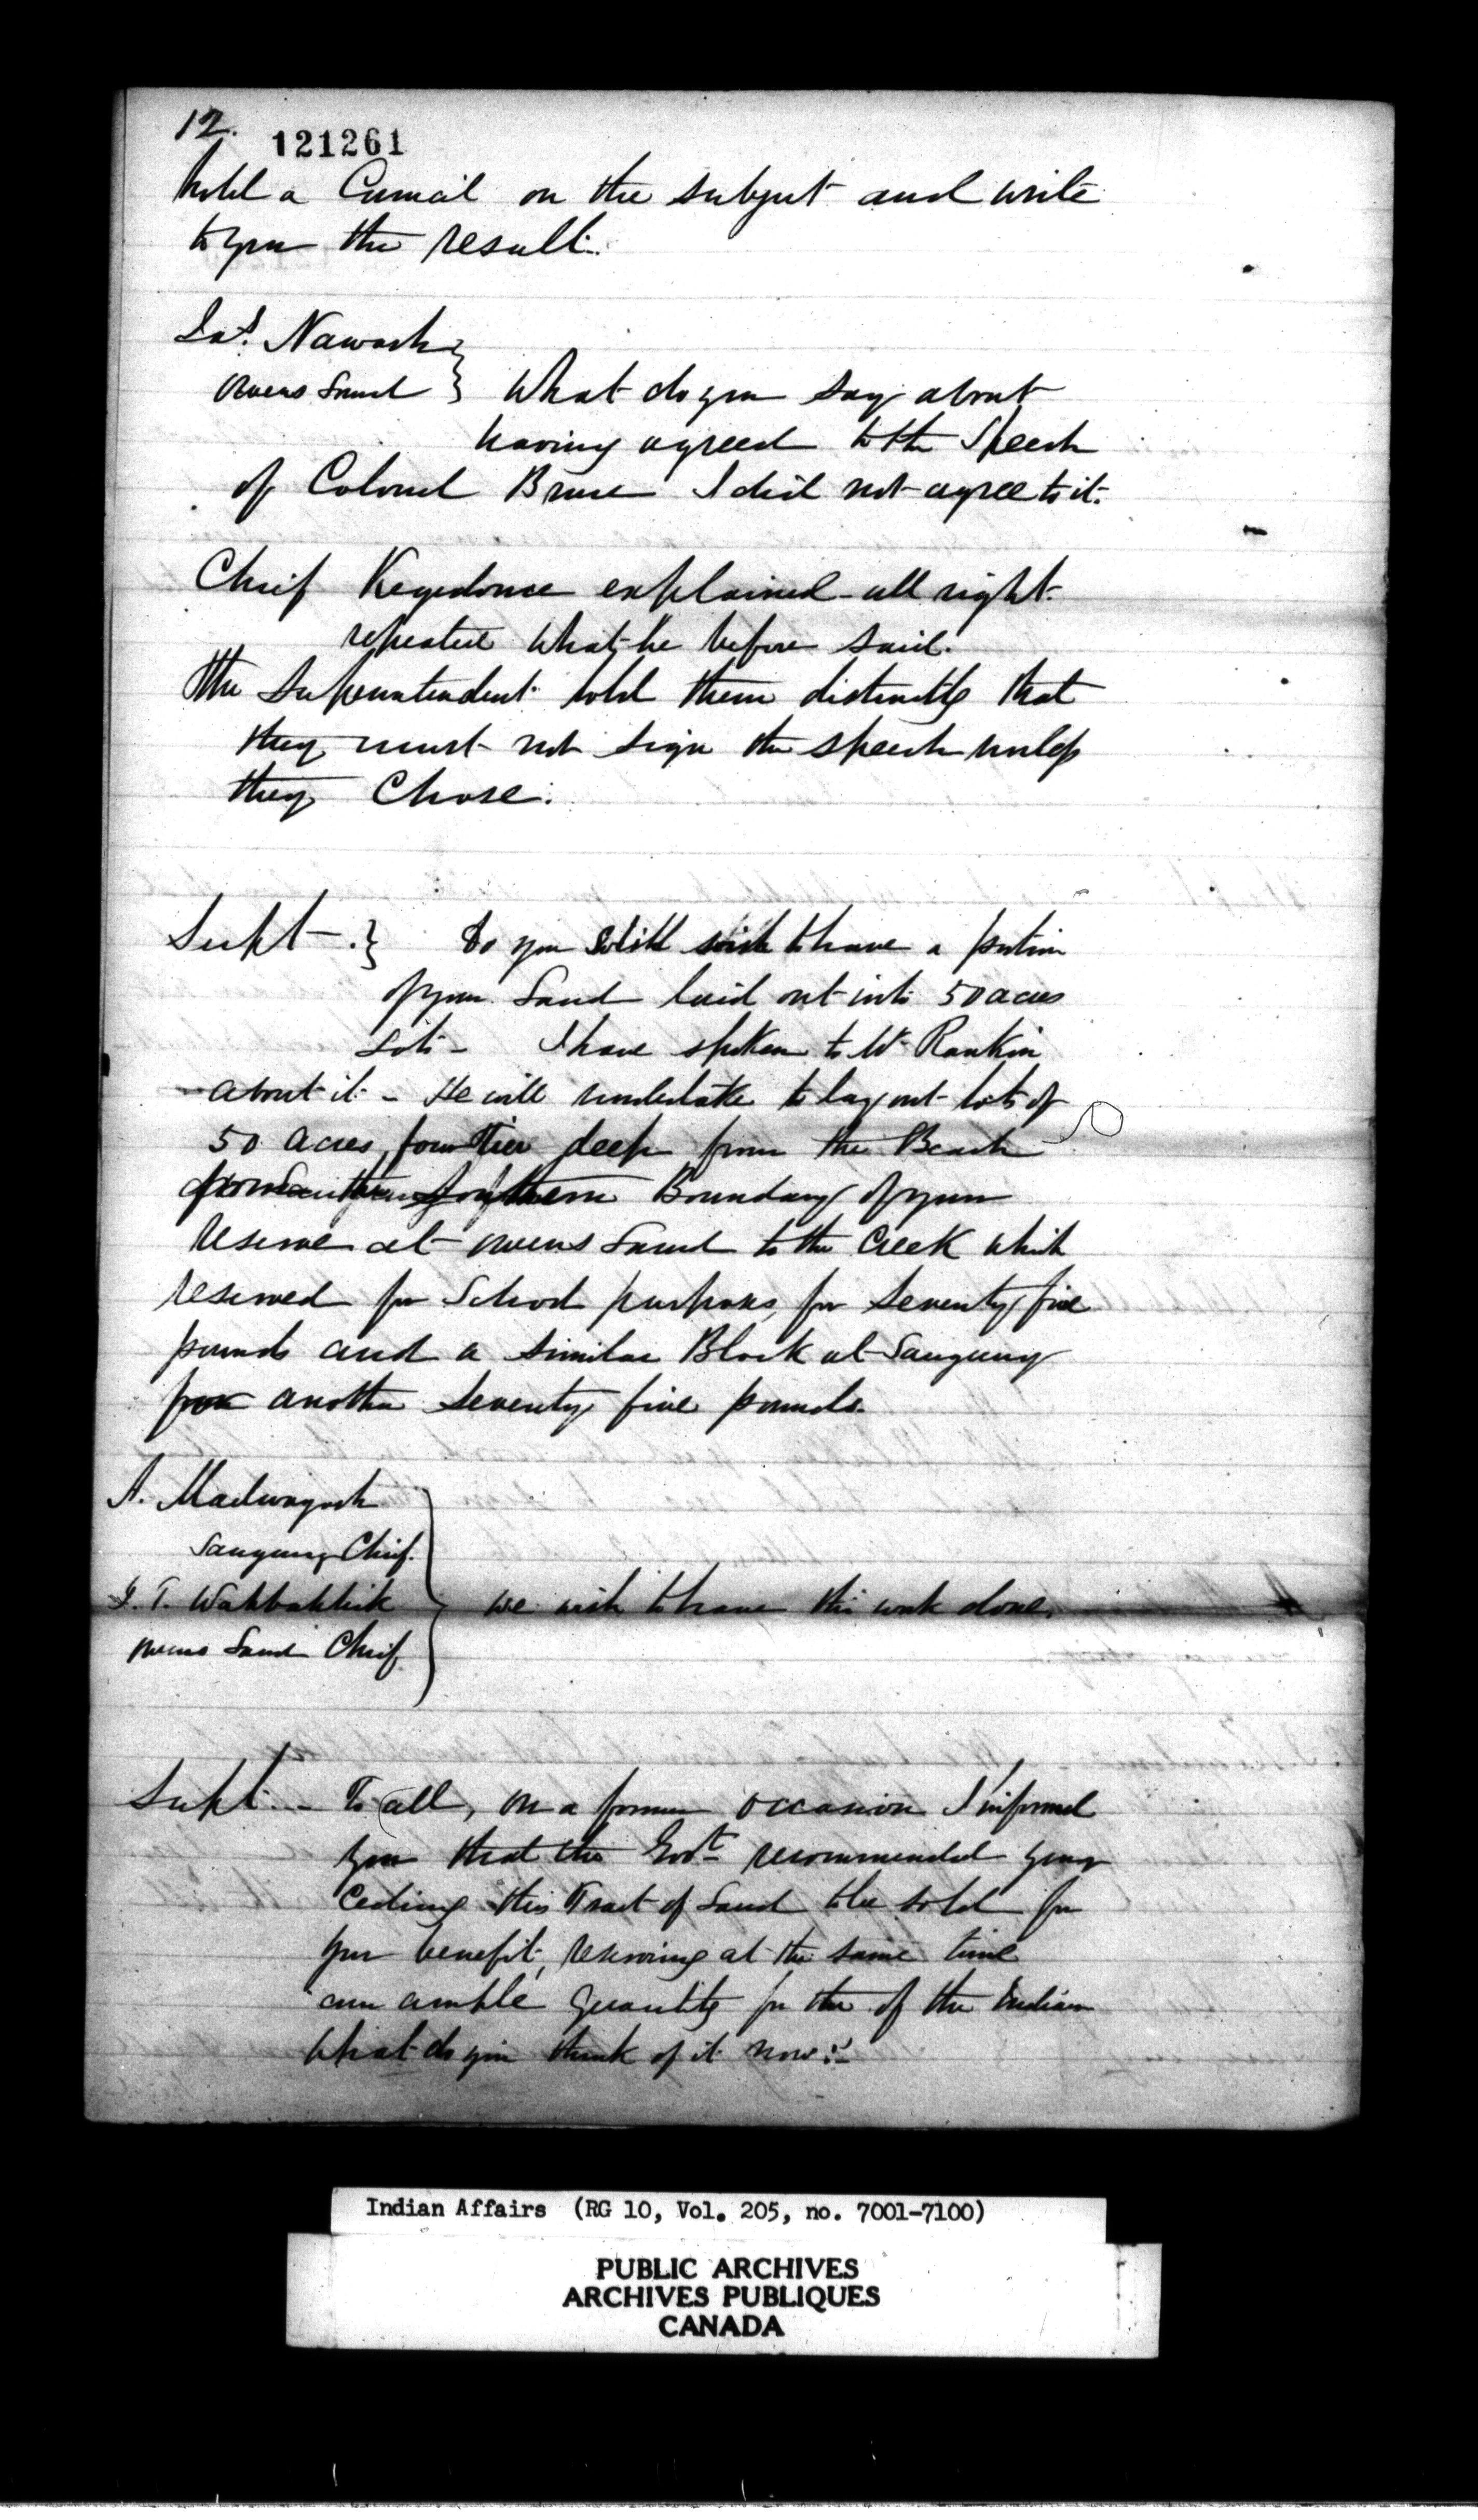 12.
121261
hold a Council on the subject and write
to you the result.
Jas. Nawash
Owens Sound } What do you say about
having agreed to the Speech
of Colonel Bruce I did not agree to it.
Chief Kegedonce explained all right
repeated what he before said.
The Superintendent told them distinctly that
they must not sign the speech unless
they Chose.
Supt. } Do you still wish to have a portion
of your Land laid out into 50 acres
Lots - I have spoken to Mr Rankin
about it - He will undertake to lay out lots of
50 acres, four Tier deep from the Beach
from Southern Boundary of your
reserve at Owens Sound to the Creek which
reserved for School purposes, for Seventy five
pounds and a similar Block at Saugung
for another seventy five pounds.
A. Madwayosh
Saugung Chief.
J. T. Wahbahdick } we wish to have this work done.
Owens Sound Chief
Supt. - To all, on a former occasion I informed
you that the Govt. recommended your
Ceding this Tract of Land to be sold for
your benefit, reserving at the same time
an ample quantity for the of the Indian
What do you think of it now:-
Indian Affairs (RG 10, Vol. 205, no. 7001-7100)
PUBLIC ARCHIVES
ARCHIVES PUBLIQUES
CANADA